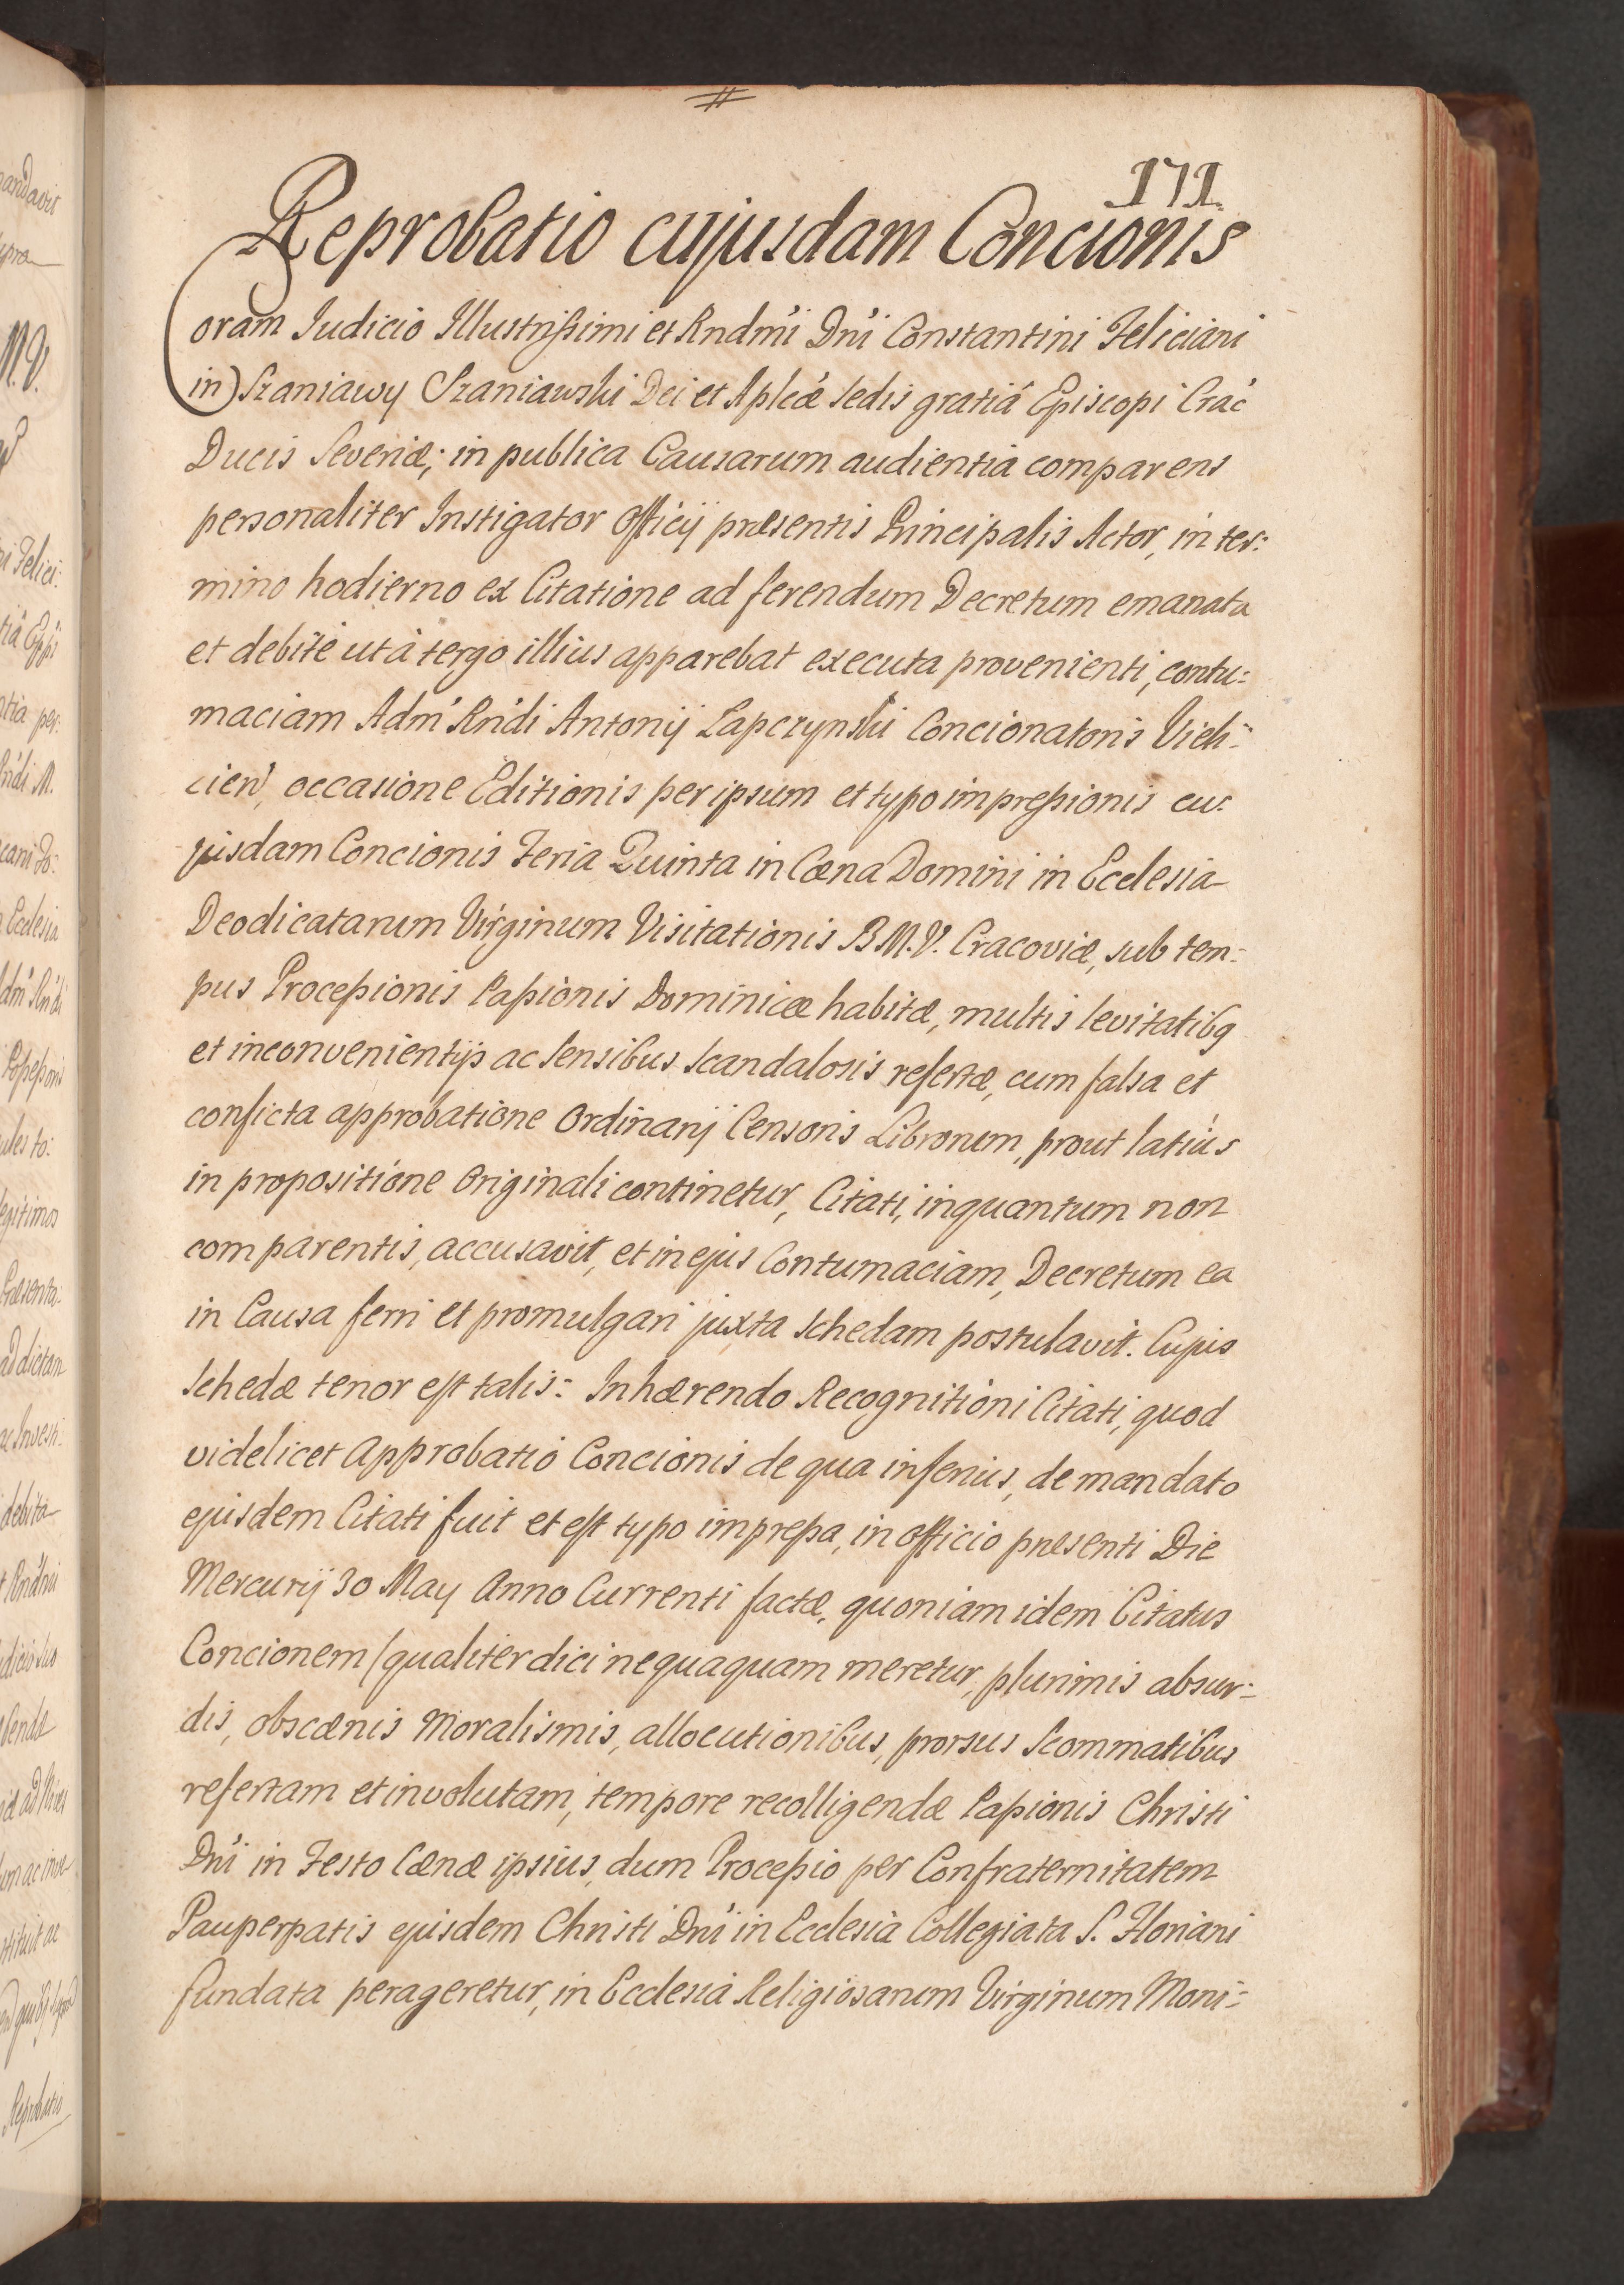 171.
Reprobatio cujusdam Concionis
Coram Judicio Illustrissimi et Rndmi Dni Constantini Feliciani
in Szaniawy Szaniawski Dei et Aplicæ Sedis gratiâ Episcopi Crac
Ducis Severiæ; in publica Causarum audientia comparens
personaliter Instigator Officij præsentis Principalis Actor, in ter:
mino hodierno ex Citatione ad ferendum Decretum emanata
et debitè ut à tergo illius apparebat executa provenienti, contu:
maciam Adm Rndi Antonij Łapczynski Concionatoris Vieli:
cien, occasione Editionis per ipsum et typo impressionis cu:
jusdam Concionis Feria Quinta in Cæna Domini in Ecclesia
Deodicatarum Virginum Visitationis B.M.V. Cracoviæ, sub tem:
pus Processionis Passionis Dominicæ habitæ, multis levitatibq
et inconvenientijs ac Sensibus Scandalosis refertæ, cum falsa et
conficta approbatione Ordinarij Censoris Librorum, prout latiùs
in propositione Originali continetur, Citati, inquantum non
comparentis, accusavit, et in ejus Contumaciam, Decretum ea
in Causa ferri et promulgari juxta Schedam postulavit. Cujus
Schedæ tenor est talis: Inhærendo Recognitioni Citati, quod
videlicet Approbatio Concionis de qua inferius, de mandato
ejusdem Citati fuit et est typo impressa, in officio præsenti Die
Mercurij 30 May Anno Currenti factæ, quoniam idem Citatus
Concionem (qualiter dici nequaquam meretur, plurimis absur:
dis, obscænis Moralismis, allocutionibus, prorsus Scommatibus
refertam et involutam, tempore recolligendæ Passionis Christi
Dni in Festo Cænæ ipsius, dum Processio per Confraternitatem
Pauperpatis ejusdem Christi Dni in Ecclesia Collegiata S. Floriani
fundata perageretur, in Ecclesia Religiosarum Virginum Moni: